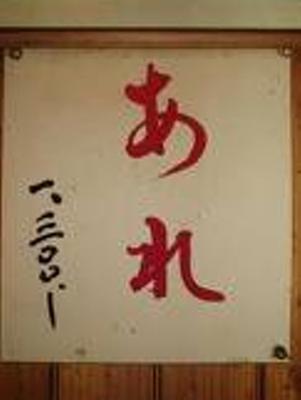 あれ
一、三〇〇.ー